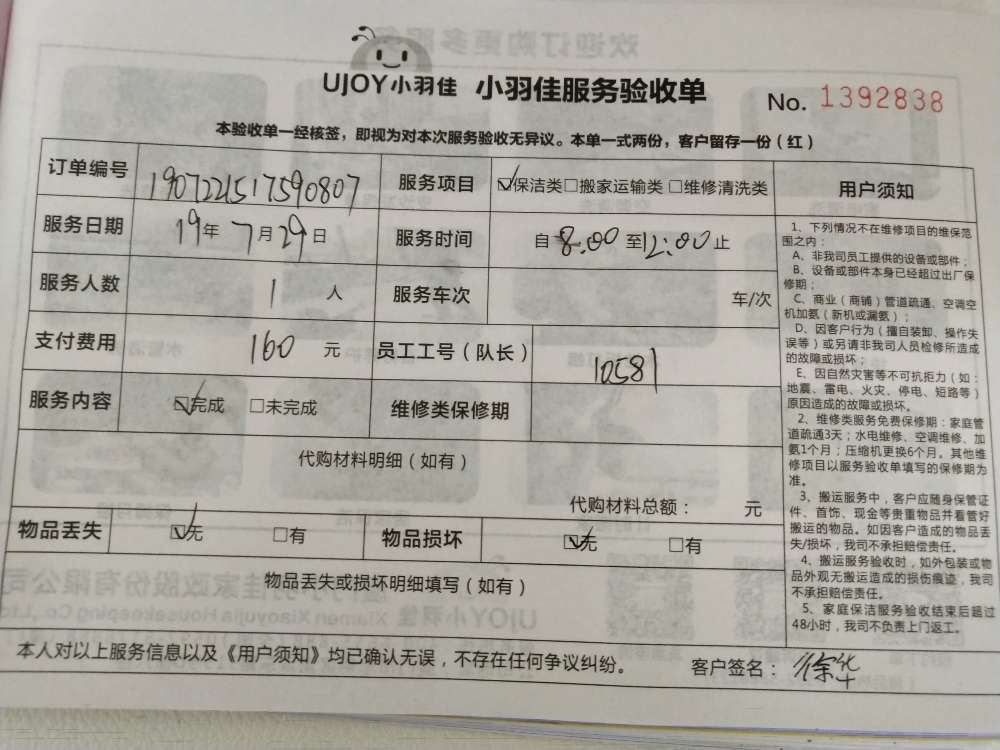 UJOY小羽佳 小羽佳服务验收单 No. 1392838
本验收单一经核签，即视为对本次服务验收无异议。本单一式两份，客户留存一份（红）
订单编号 1907221517590807 服务项目 ☑保洁类□搬家运输类□维修清洗类
服务日期 19年7月29日 服务时间 自8:00至12:00止
服务人数 1人 服务车次 车/次
支付费用 160元 员工工号（队长） 10581
服务内容 ☑完成 □未完成 维修类保修期
代购材料明细（如有）
代购材料总额： 元
物品丢失 ☑无 □有 物品损坏 ☑无 □有
物品丢失或损坏明细填写（如有）
用户须知
1、下列情况不在维修项目的维保范
围之内：
A、非我司员工提供的设备或部件；
B、设备或部件本身已经超过出厂保
修期；
C、商业（商铺）管道疏通、空调空
机加氨（新机或漏氨）；
D、因客户行为（擅自装卸、操作失
误等）或另请非我司人员检修所造成
的故障或损坏；
E、因自然灾害等不可抗拒力（如：
地震、雷电、火灾、停电、短路等）
原因造成的故障或损坏。
2、维修类服务免费保修期：家庭管
道疏通3天；水电维修、空调维修、加
氨1个月；压缩机更换6个月。其他维
修项目以服务验收单填写的保修期为
准。
3、搬运服务中，客户应随身保管证
件、首饰、现金等贵重物品并看管好
搬运的物品。如因客户造成的物品丢
失/损坏，我司不承担赔偿责任。
4、搬运服务验收时，如外包装或物
品外观无搬运造成的损伤痕迹，我司
不承担赔偿责任。
5、家庭保洁服务验收结束后超过
48小时，我司不负责上门返工。
本人对以上服务信息以及《用户须知》均已确认无误，不存在任何争议纠纷。 客户签名：徐华